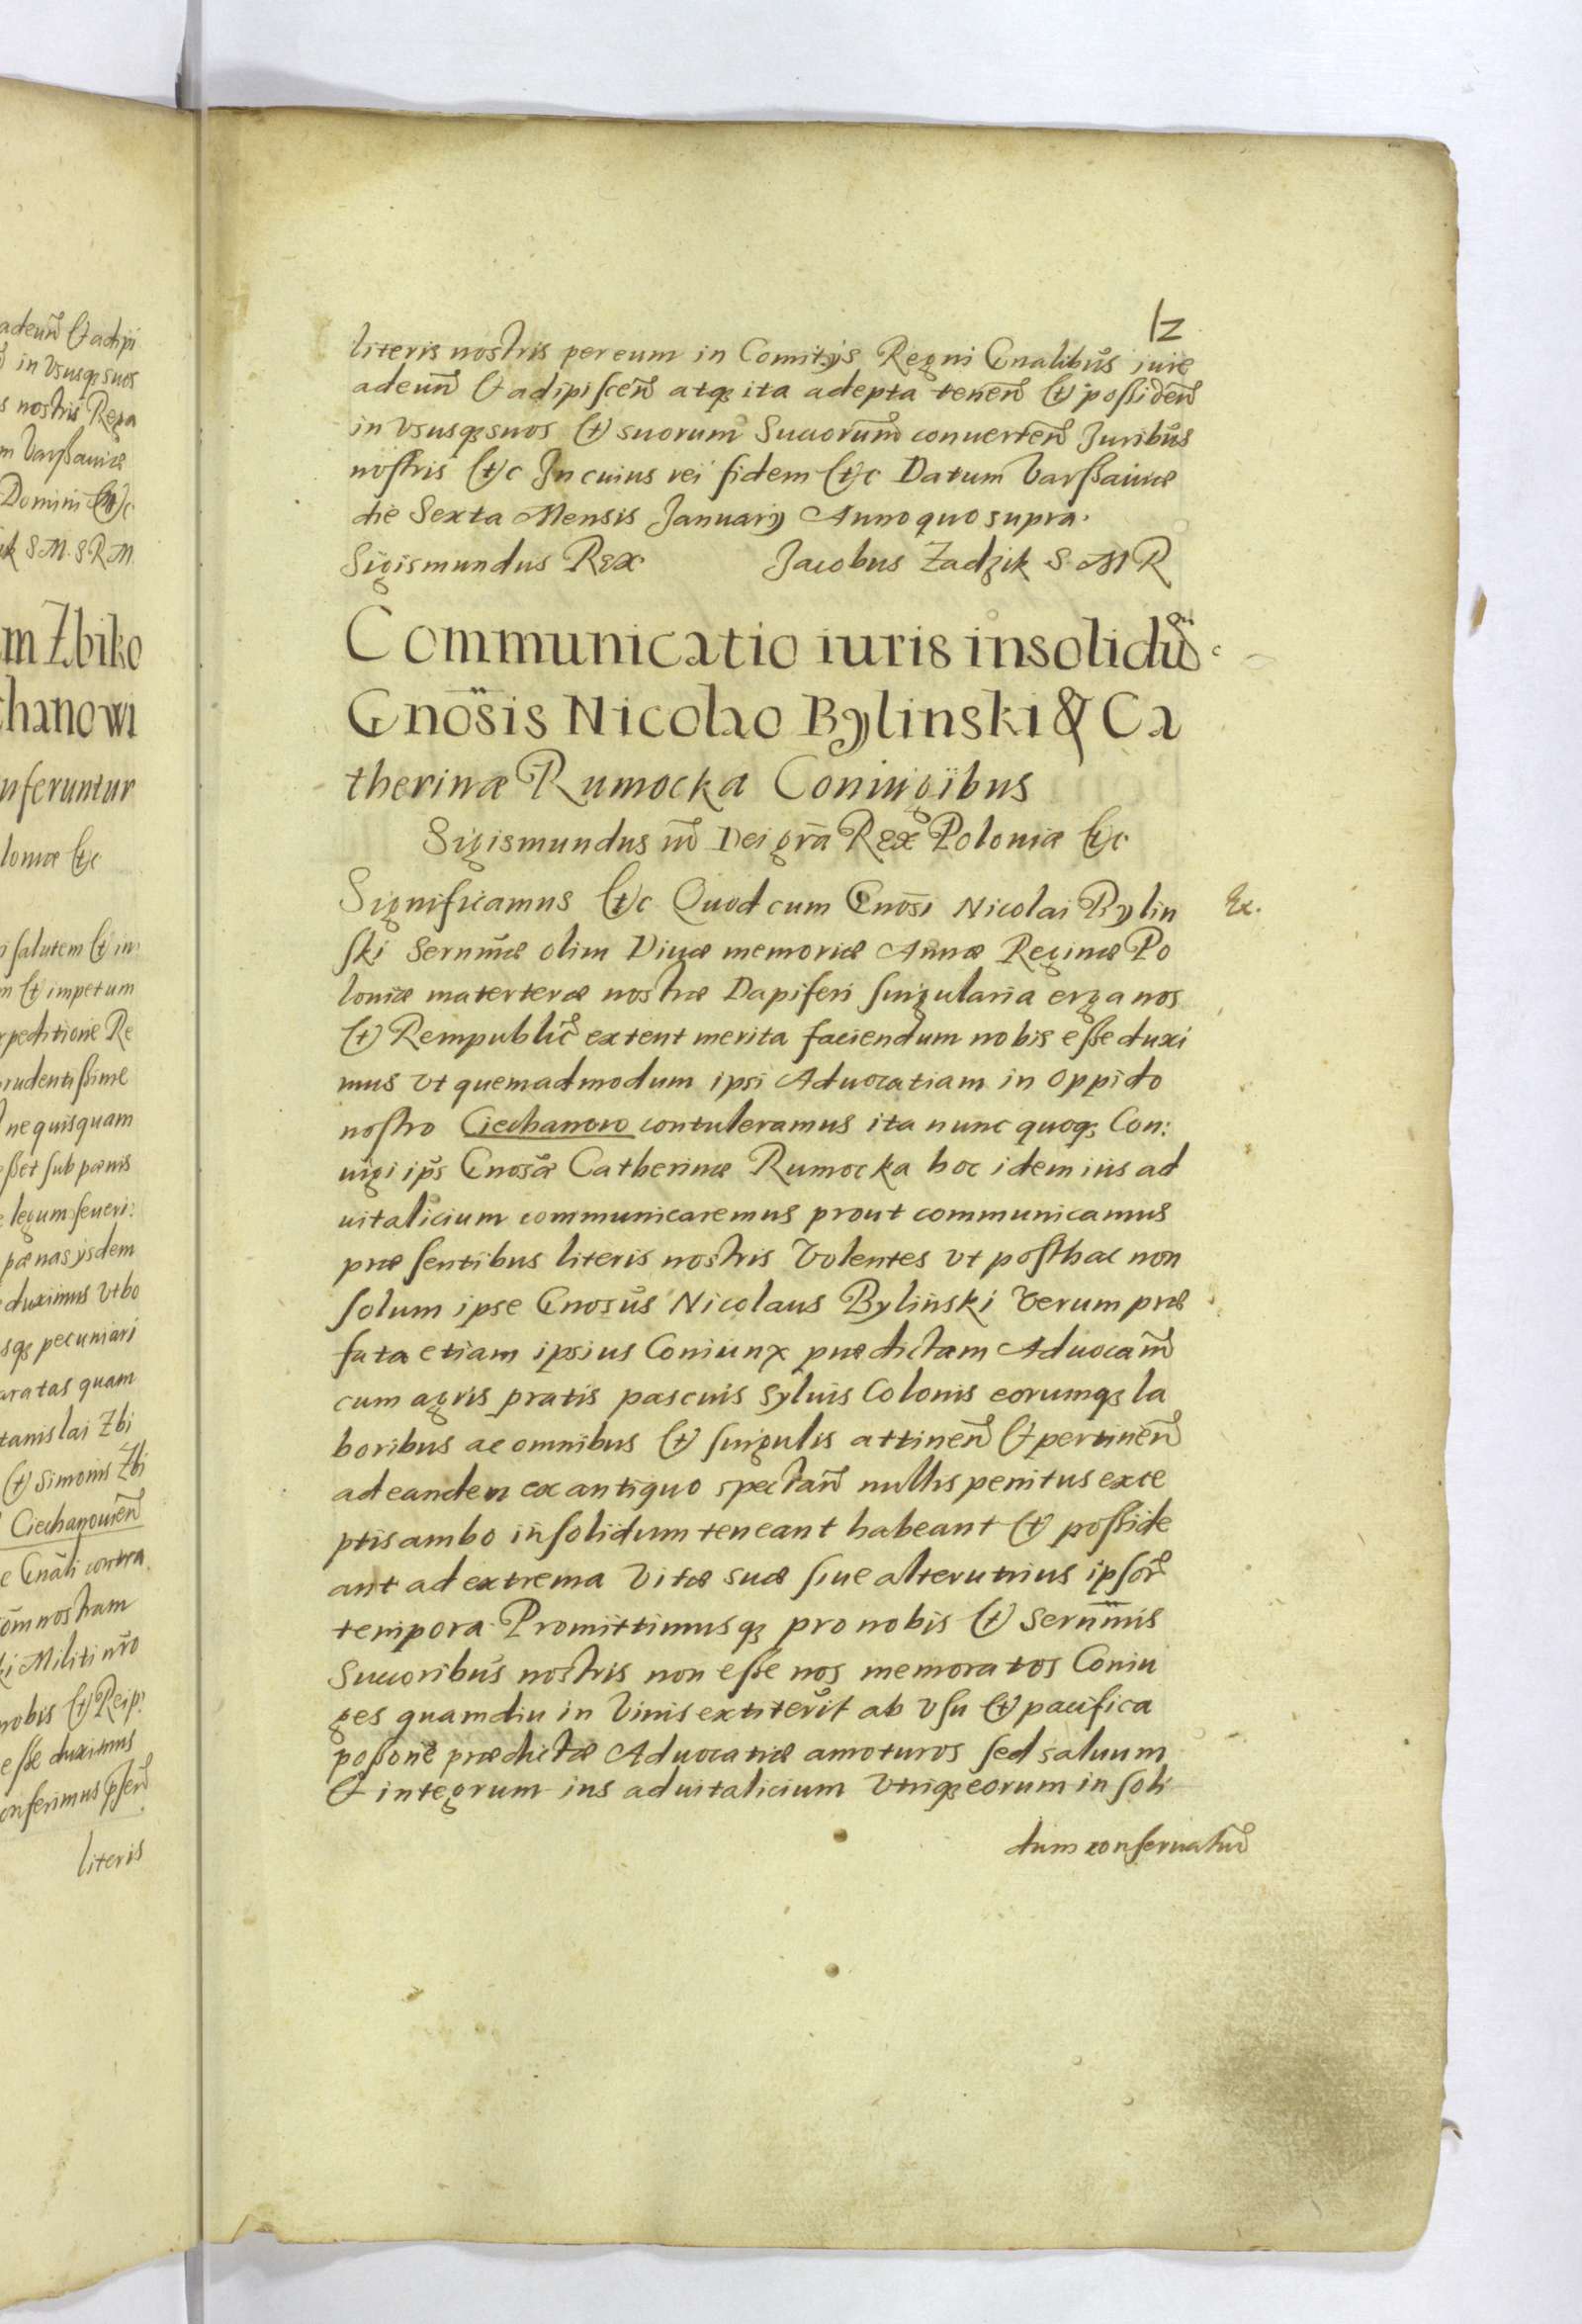 adeun̄ & adipi
in Vsusqȝ suos
s nostris Rega
m Varssauiæ
Domini &c
ik S M S R M
m Zbiko
chanowi
nferuntur
loniæ &c
i salutem & in
m & impetum
rpeditione Re
rudentissime
ne quisquam
sset sub pœnis
legum seueri:
pœnas ijsdem
duximus vt bo
sqȝ pecuniari
aratas quam
tanislai Zbi
& Simonis Zbi
Ciechanouien̄
e Gn̄ali contra
om̄ nostram
ki Militi nr̄o
nobis & Reip:
esse duximus
onferimus pn̄sen̄
literis
12
literis nostris per eum in Comitijs Regni Gn̄alibus iure
adeun̄ & adipiscen̄ atqȝ ita adepta tenen̄ & possiden̄
in vsusqȝ suos & suorum Succorum conuerten̄ Juribus
nostris &c In cuius rei fidem &c Datum Varssauiæ
die Sexta Mensis Januarij Anno quo supra.
Sigismundus Rex Jacobus Zadzik S. M R
Communicatio iuris insolidū
Gnōsis Nicolao Bylinski & Ca
therinæ Rumocka Coniugibus
Sigismundus iii Dei grā Rex Poloniæ &c
Significamus &c Quod cum Gnōsi Nicolai Bylin
Ex.
ski Sernmæ olim Diuæ memoriæ Annæ Reginæ Po
loniæ materteræ nostræ Dapiferi singularia erga nos
& Rempublic̄ extent merita faciendum nobis esse duxi
mus vt quemadmodum ipsi Aduocatiam in oppido
nostro Ciechanow contuleramus ita nunc quoqȝ Con:
iugi ips̄ Gnosæ Catherinæ Rumocka hoc idem ius ad
uitalicium communicaremus prout communicamus
præsentibus literis nostris Volentes vt posthac non
solum ipse Gnosus Nicolaus Bylinski Verum præ
fata etiam ipsius Coniunx prædictam Aduocam̄
cum agris pratis pascuis syluis Colonis eorumqȝ la
boribus ac omnibus & singulis attinen̄ & pertinen̄
ad eandem ex antiquo spectan̄ nullis penitus exce
ptis ambo insolidum teneant habeant & posside
ant ad extrema Vitæ suæ siue alterutrius ipsor̄
tempora Promittimusqȝ pro nobis & Sernmis
Succoribus nostris non esse nos memoratos Coniu
ges quamdiu in Viuis extiterit ab vsu & pacifica
possonē prædictæ Aduocatiæ amoturos sed saluum
& integrum ius aduitalicium Vtriqȝ eorum in soli
dum conseruatur̄